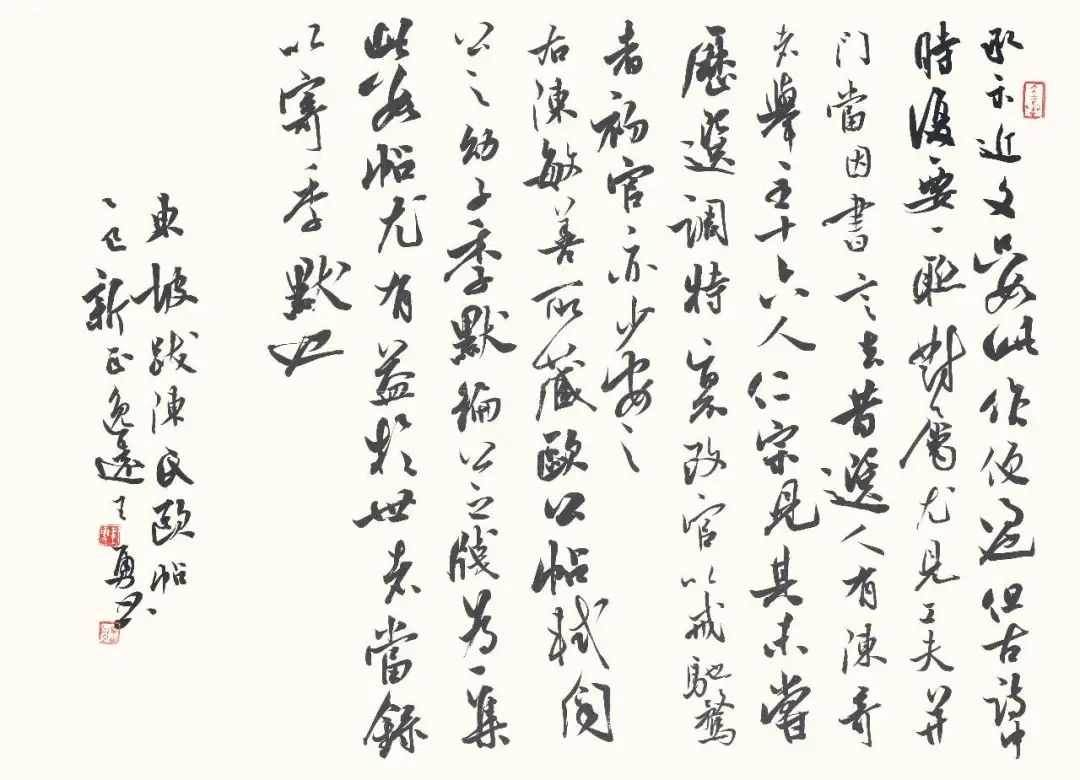 承示近文只如此作便過但古詩中
時復要一聯對屬尤見工夫并
門當因書言去昔選人有陳奇
者舉主十六人仁宗見其未嘗
歷選調特旨不改官以戒馳騖
者初官亦少安之
右陳敏善所藏歐公帖軾聞
公之幼子季默編公之牋為一集
此數帖尤有益於世者當錄
以寄季默也
東坡跋陳氏歐帖
乙巳新正逸遠王勇書